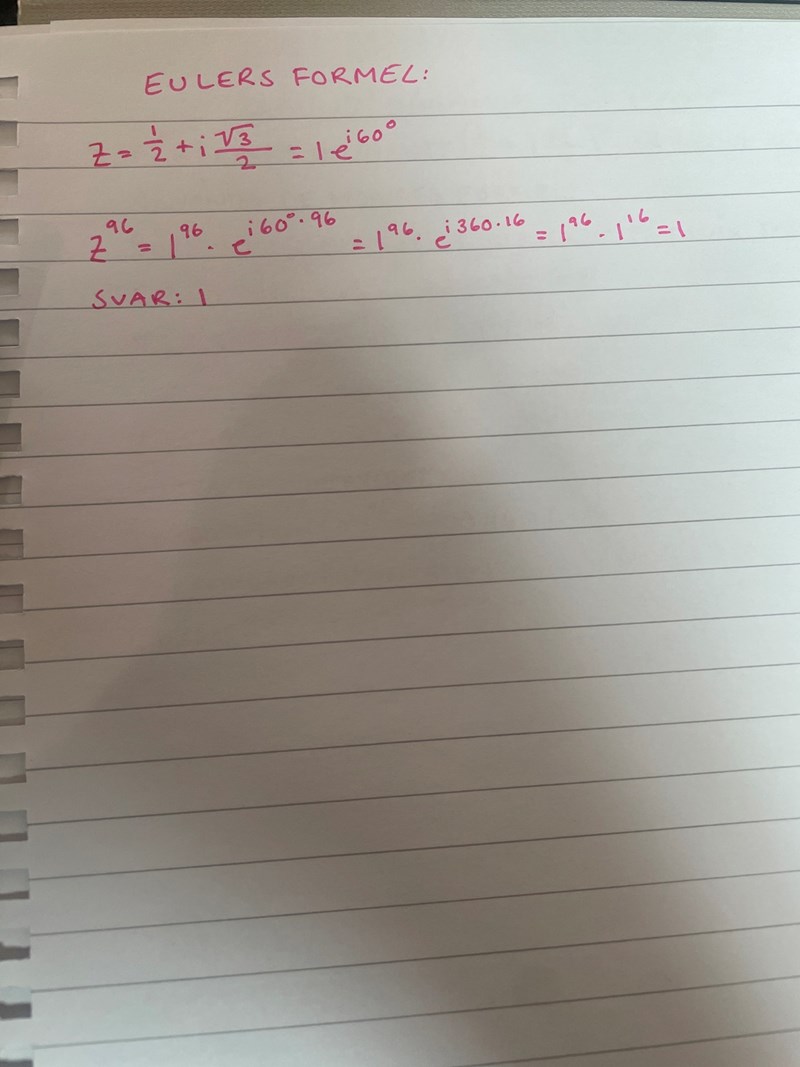 EULERS FORMEL:
z = 1/2 + i √3/2 = 1 e^{i60°}
z^{96} = 1^{96} · e^{i60°·96} = 1^{96} · e^{i360·16} = 1^{96} · 1^{16} = 1
SVAR: 1